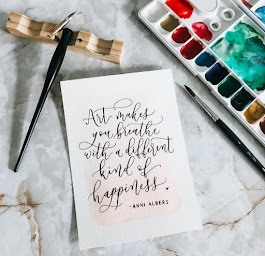 Art makes
you breathe
with a different
kind of
happiness.
-ANNI ALBERS